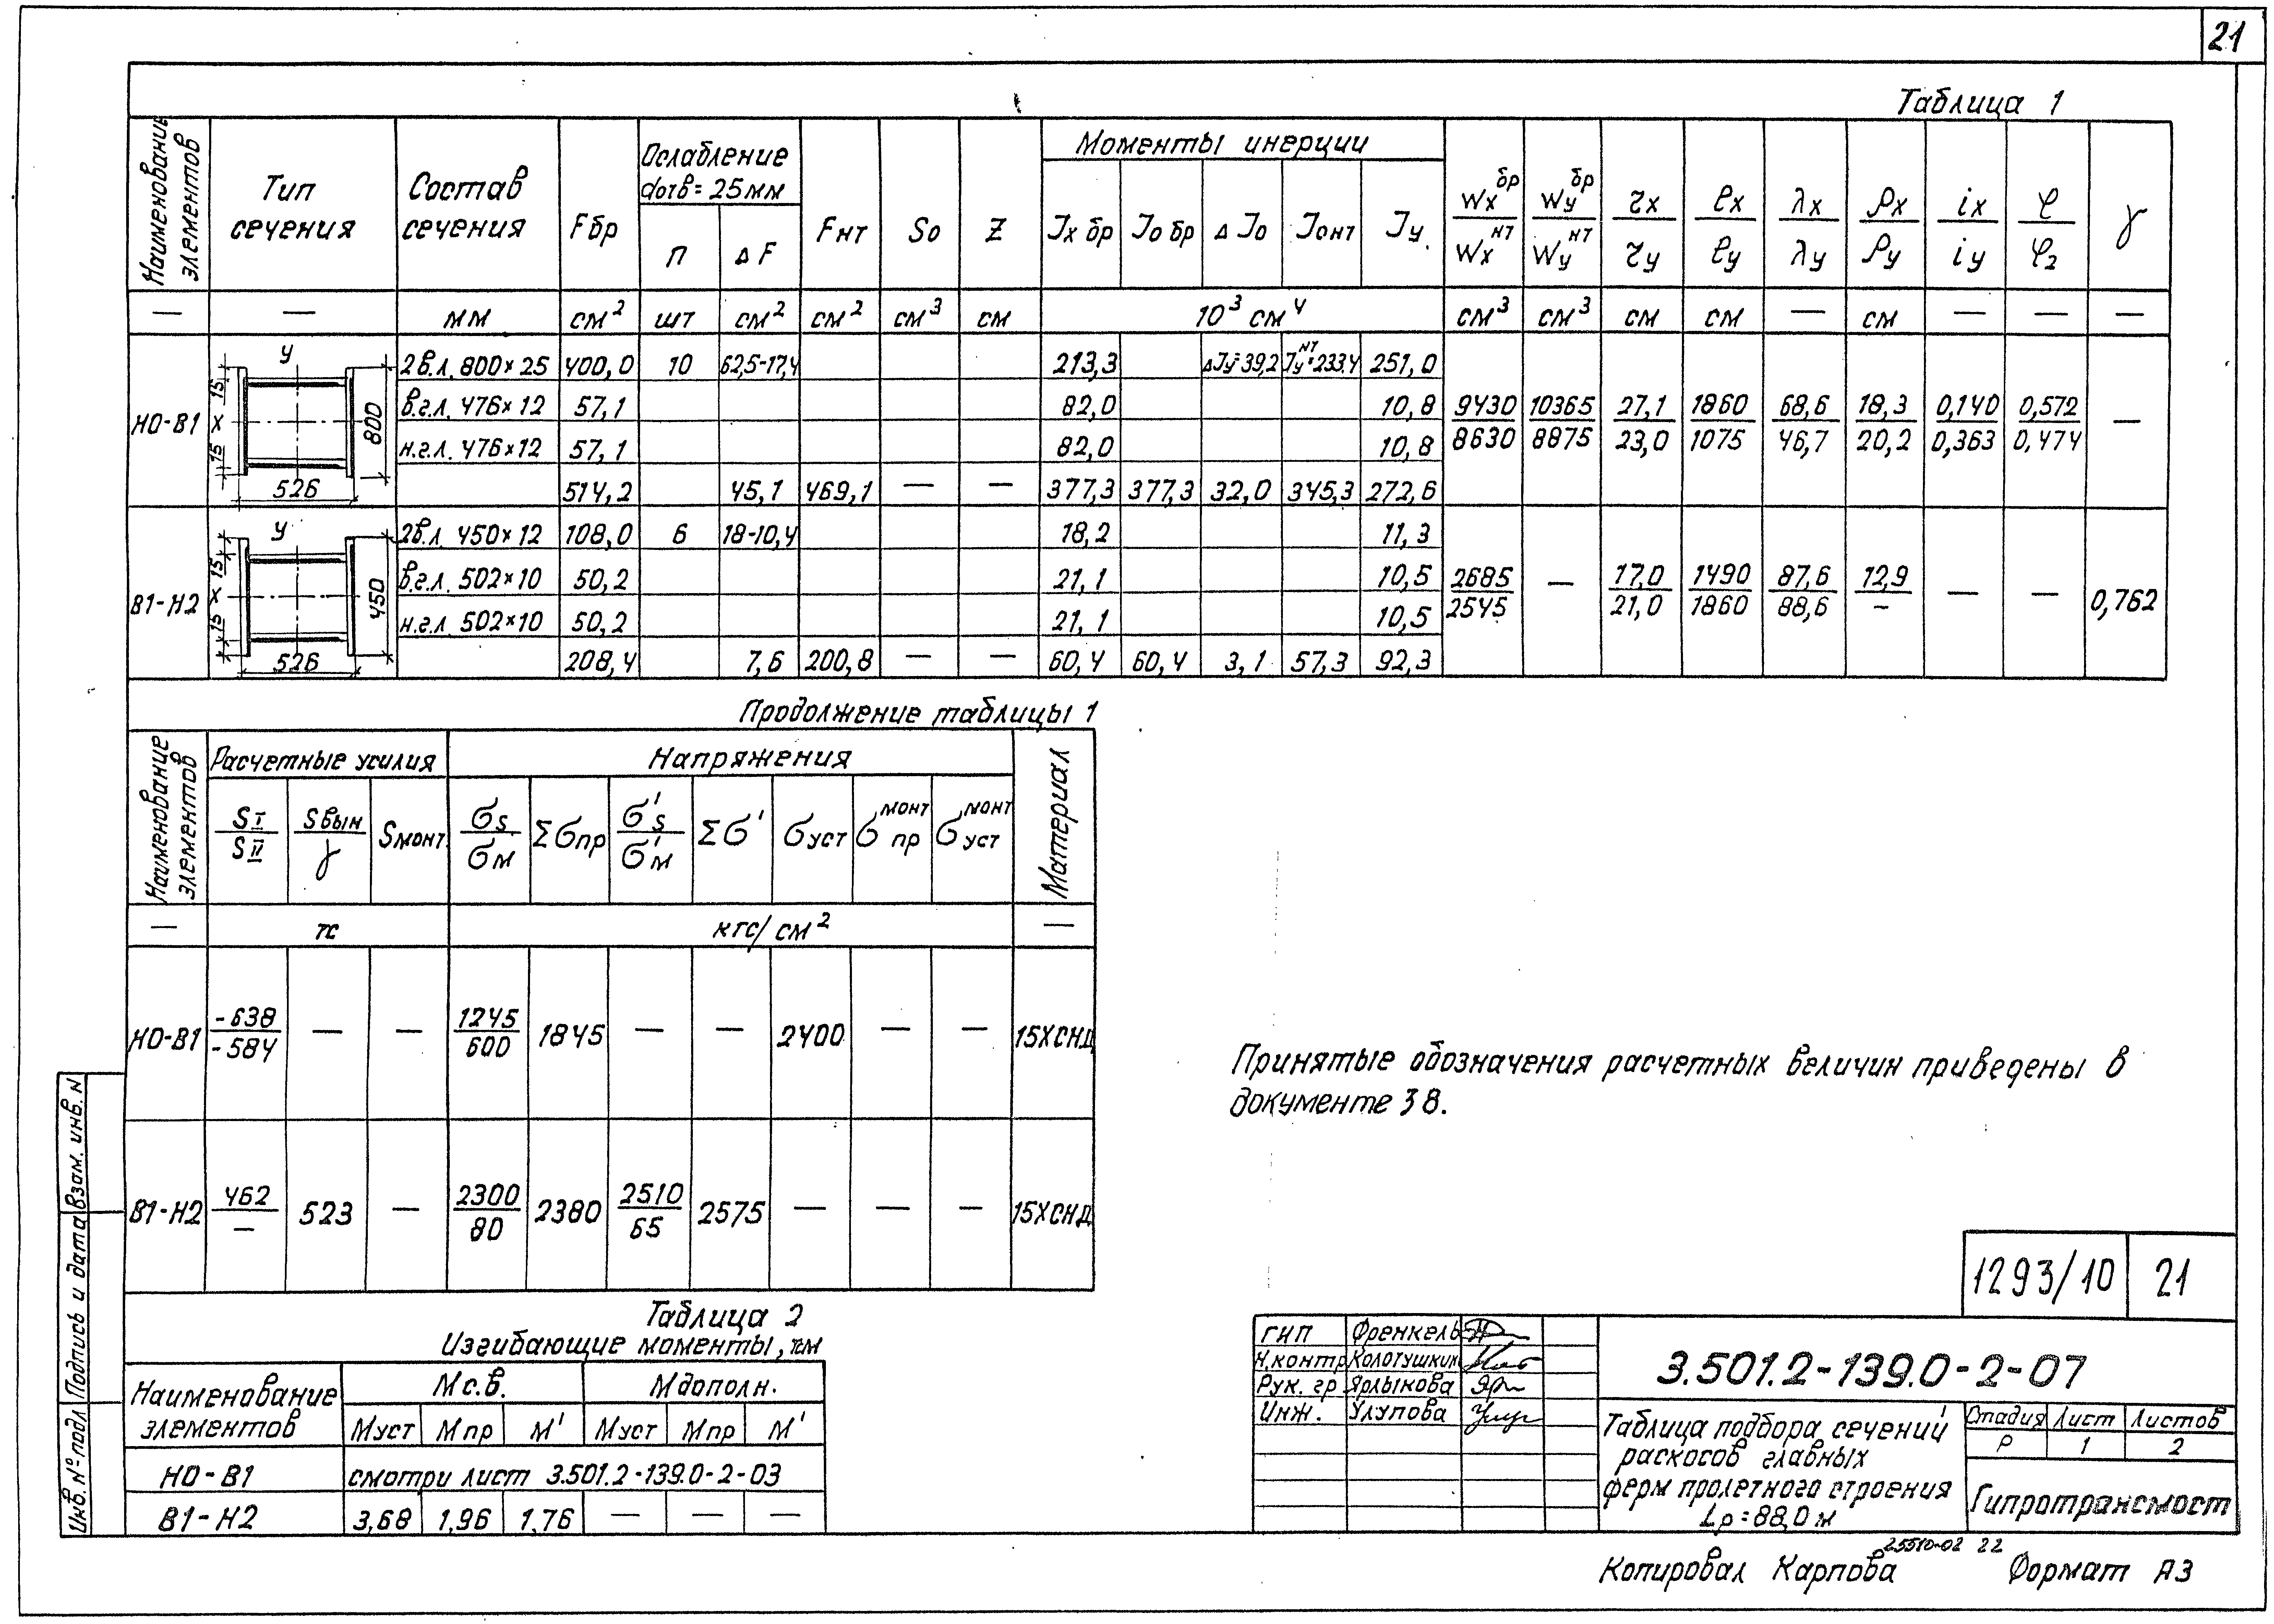 21
Таблица 1
Наименование элементов | Тип сечения | Состав сечения | Fбр | Ослабление dотв = 25 мм | Fнт | So | Z | Моменты инерции | Wx бр / Wx нт | Wy бр / Wy нт | τx / τy | ℓx / ℓy | λx / λy | ρx / ρy | ix / iy | φ / φ2 | γ
п | ΔF | Jx бр | Jо бр | ΔJо | Jонт | Jy
— | — | мм | см² | шт | см² | см² | см³ | см | 10³ см⁴ | см³ | см³ | см | см | — | см | — | — | —
Н0-В1 | у х 15 15 800 526 | 2в.л. 800×25 | 400,0 | 10 | 62,5-17,4 | 213,3 | ΔJy=39,2 | Jy нт=233,4 | 251,0
в.г.л. 476×12 | 57,1 | 82,0 | 10,8 | 9430/8630 | 10365/8875 | 27,1/23,0 | 1860/1075 | 68,6/46,7 | 18,3/20,2 | 0,140/0,363 | 0,572/0,474 | —
н.г.л. 476×12 | 57,1 | 82,0 | 10,8
514,2 | 45,1 | 469,1 | — | — | 377,3 | 377,3 | 32,0 | 345,3 | 272,6
В1-Н2 | у х 15 15 450 526 | 2в.л. 450×12 | 108,0 | 6 | 18-10,4 | 18,2 | 11,3
в.г.л. 502×10 | 50,2 | 21,1 | 10,5 | 2685/2545 | — | 17,0/21,0 | 1490/1860 | 87,6/88,6 | 12,9/— | — | — | 0,762
н.г.л. 502×10 | 50,2 | 21,1 | 10,5
208,4 | 7,6 | 200,8 | — | — | 60,4 | 60,4 | 3,1 | 57,3 | 92,3
Продолжение таблицы 1
Наименование элементов | Расчетные усилия | Напряжения | Материал
SI / SII | Sвын / γ | Sмонт | σs / σм | Σσпр | σ's / σ'м | Σσ' | σуст | σ монт пр | σ монт уст
— | тс | кгс/см² | —
Н0-В1 | -638/-584 | — | — | 1245/600 | 1845 | — | — | 2400 | — | — | 15ХСНД
В1-Н2 | 462/— | 523 | — | 2300/80 | 2380 | 2510/65 | 2575 | — | — | — | 15ХСНД
Принятые обозначения расчетных величин приведены в
документе 38.
Таблица 2
Изгибающие моменты, тм
Наименование элементов | Мс.в. | Мдополн.
Муст | Мпр | М' | Муст | Мпр | М'
Н0-В1 | смотри лист 3.501.2-139.0-2-03
В1-Н2 | 3,68 | 1,96 | 1,76 | — | — | —
Инв. № подл | Подпись и дата | Взам. инв. N
1293/10 | 21
ГИП | Френкель
Н.контр | Колотушкин
Рук. гр | Ярлыкова
Инж. | Улупова
3.501.2-139.0-2-07
Таблица подбора сечений
раскосов главных
ферм пролетного строения
Lр = 88,0 м
Стадия | Лист | Листов
Р | 1 | 2
Гипротрансмост
25510-02 22
Копировал Карпова Формат А3